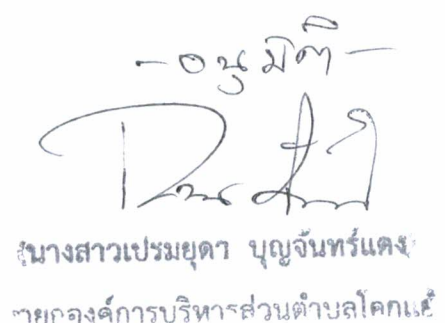 - อนุมัติ -
(นางสาวเปรมยุดา บุญจันทร์แดง)
นายกองค์การบริหารส่วนตำบล